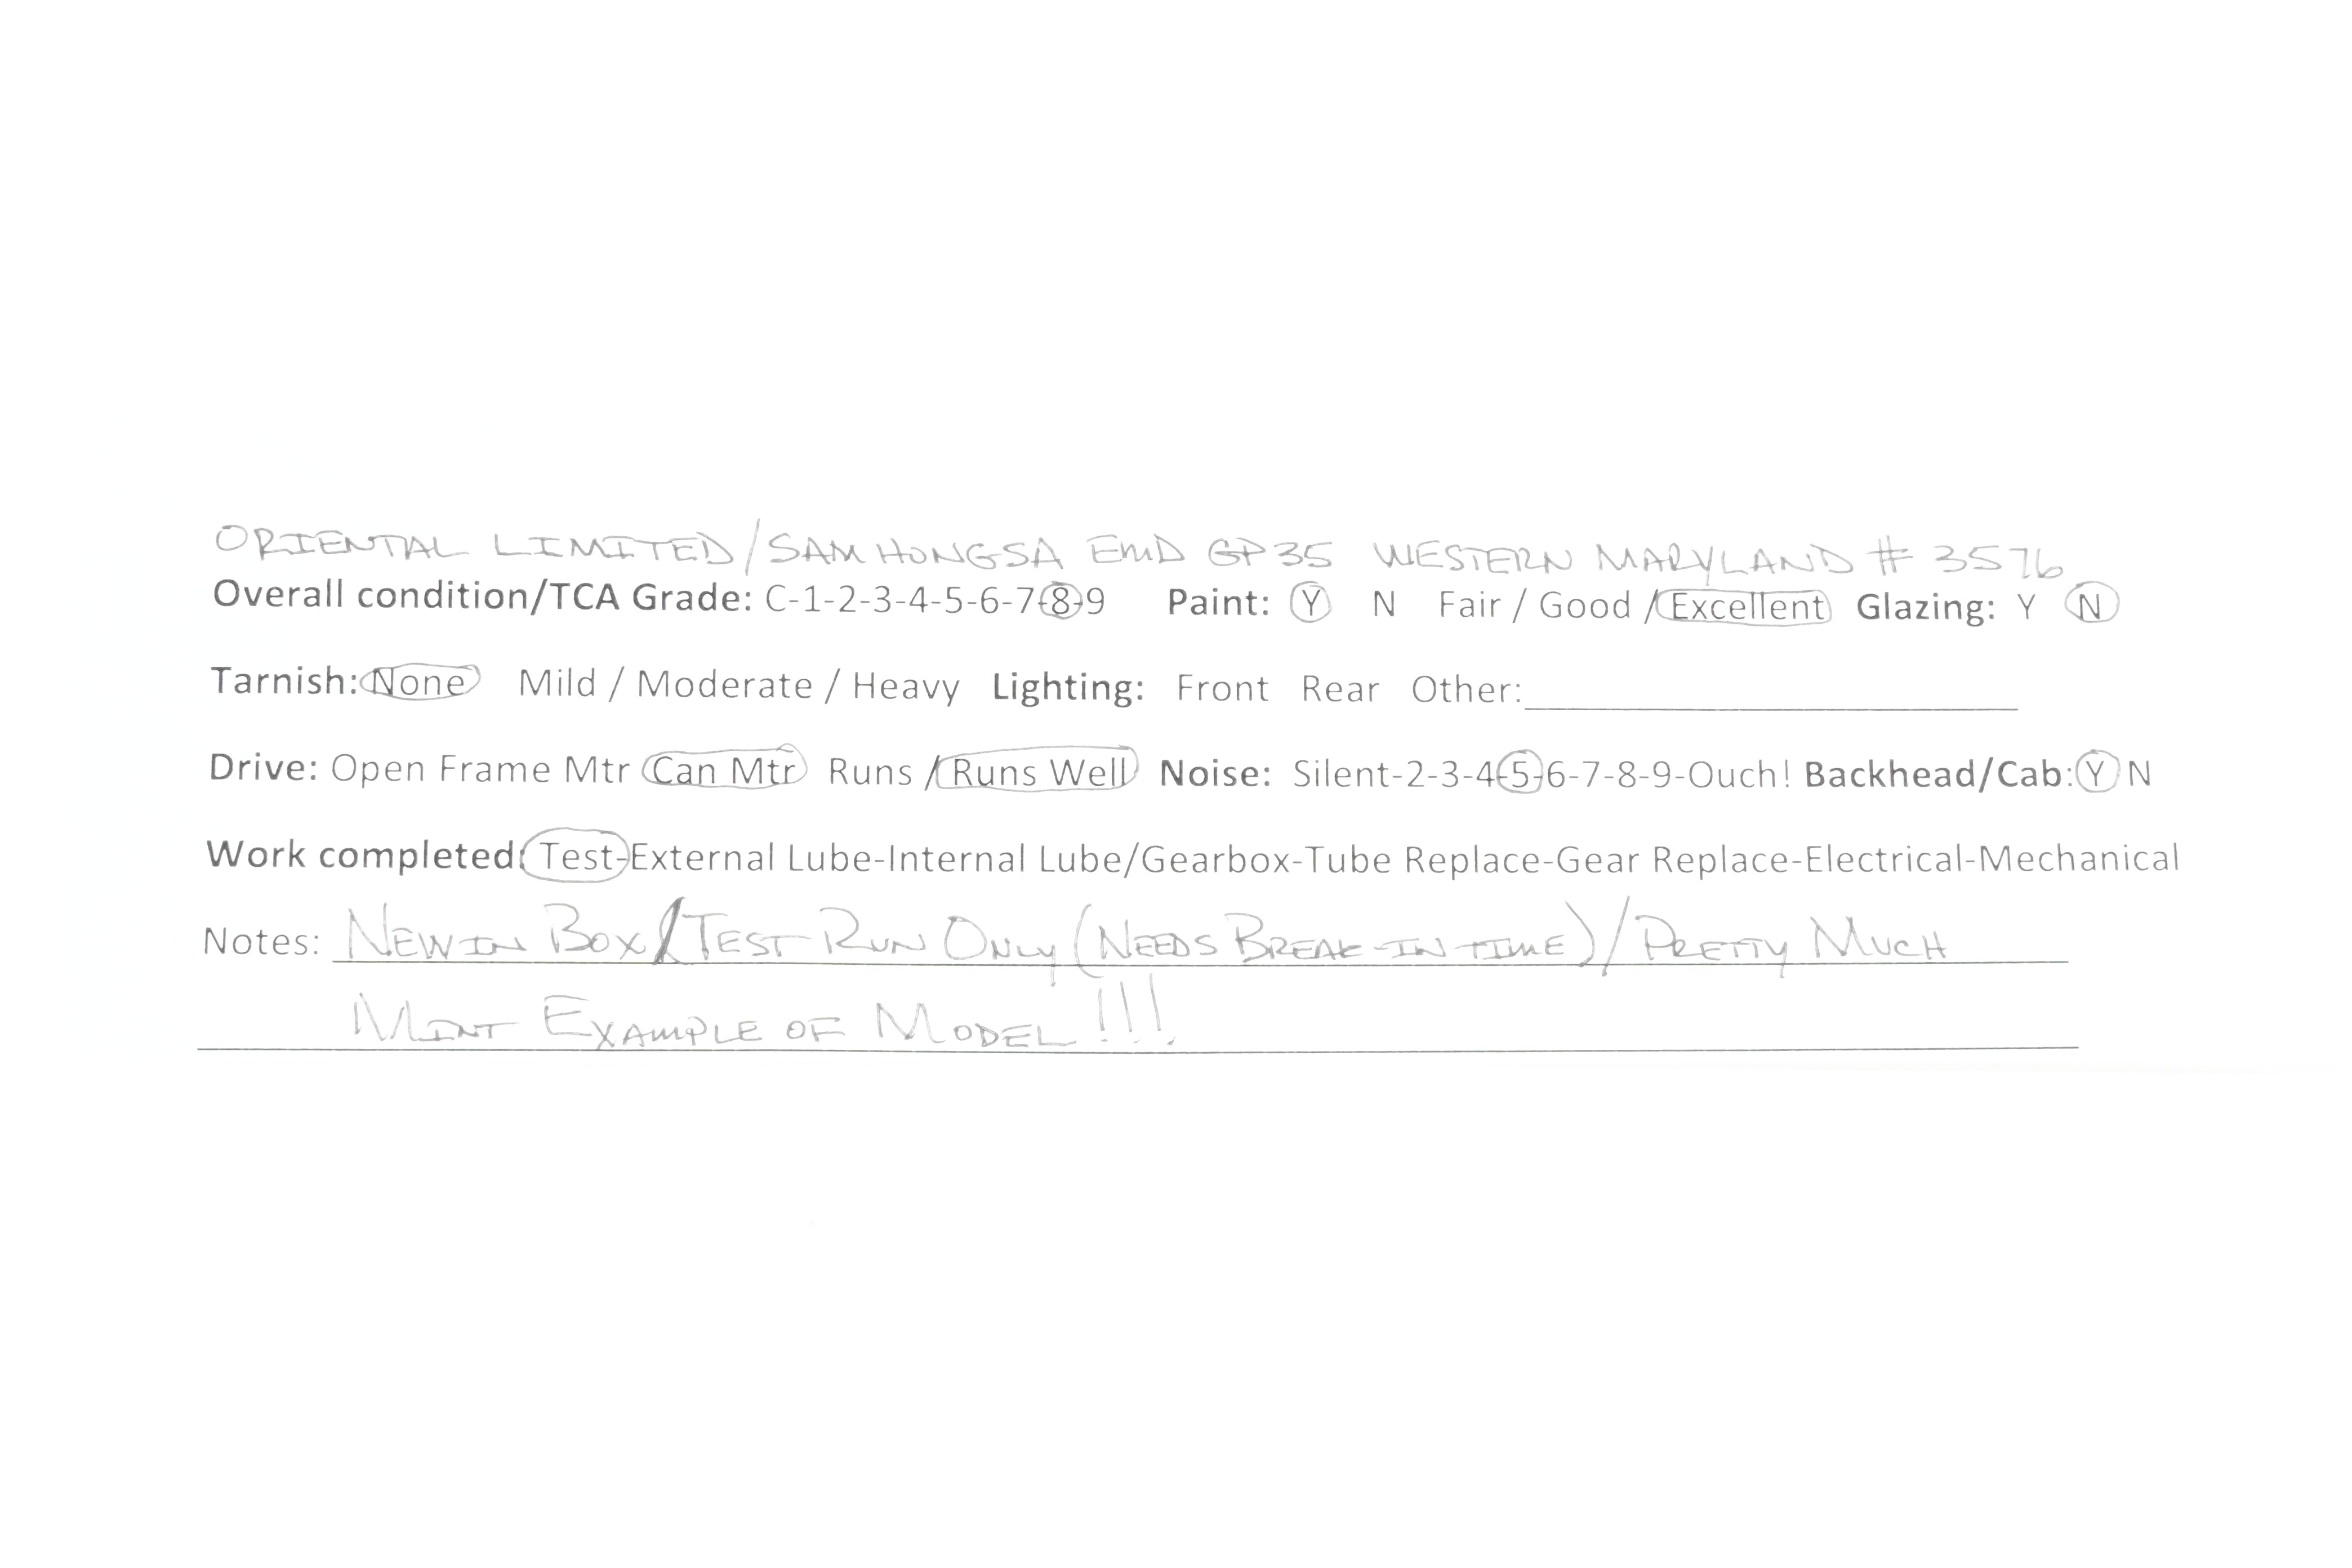 ORIENTAL LIMITED/SAMHONGSA EMD GP35 WESTERN MARYLAND # 3576
Overall condition/TCA Grade: C-1-2-3-4-5-6-7-8-9 Paint: Y N Fair / Good / Excellent Glazing: Y N
Tarnish: None Mild / Moderate / Heavy Lighting: Front Rear Other:
Drive: Open Frame Mtr Can Mtr Runs / Runs Well Noise: Silent-2-3-4-5-6-7-8-9-Ouch! Backhead/Cab: Y N
Work completed: Test-External Lube-Internal Lube/Gearbox-Tube Replace-Gear Replace-Electrical-Mechanical
Notes: NEW IN BOX/TEST RUN ONLY (NEEDS BREAK-IN TIME)/PRETTY MUCH
MINT EXAMPLE OF MODEL!!!